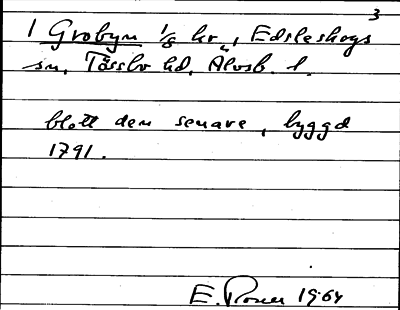 3
1 Grobyn 1/8 kr", Edsleskogs
sn, Tössbo hd, Älvsb. l.
blott den senare, byggd
1791.
E. Rosell 1964